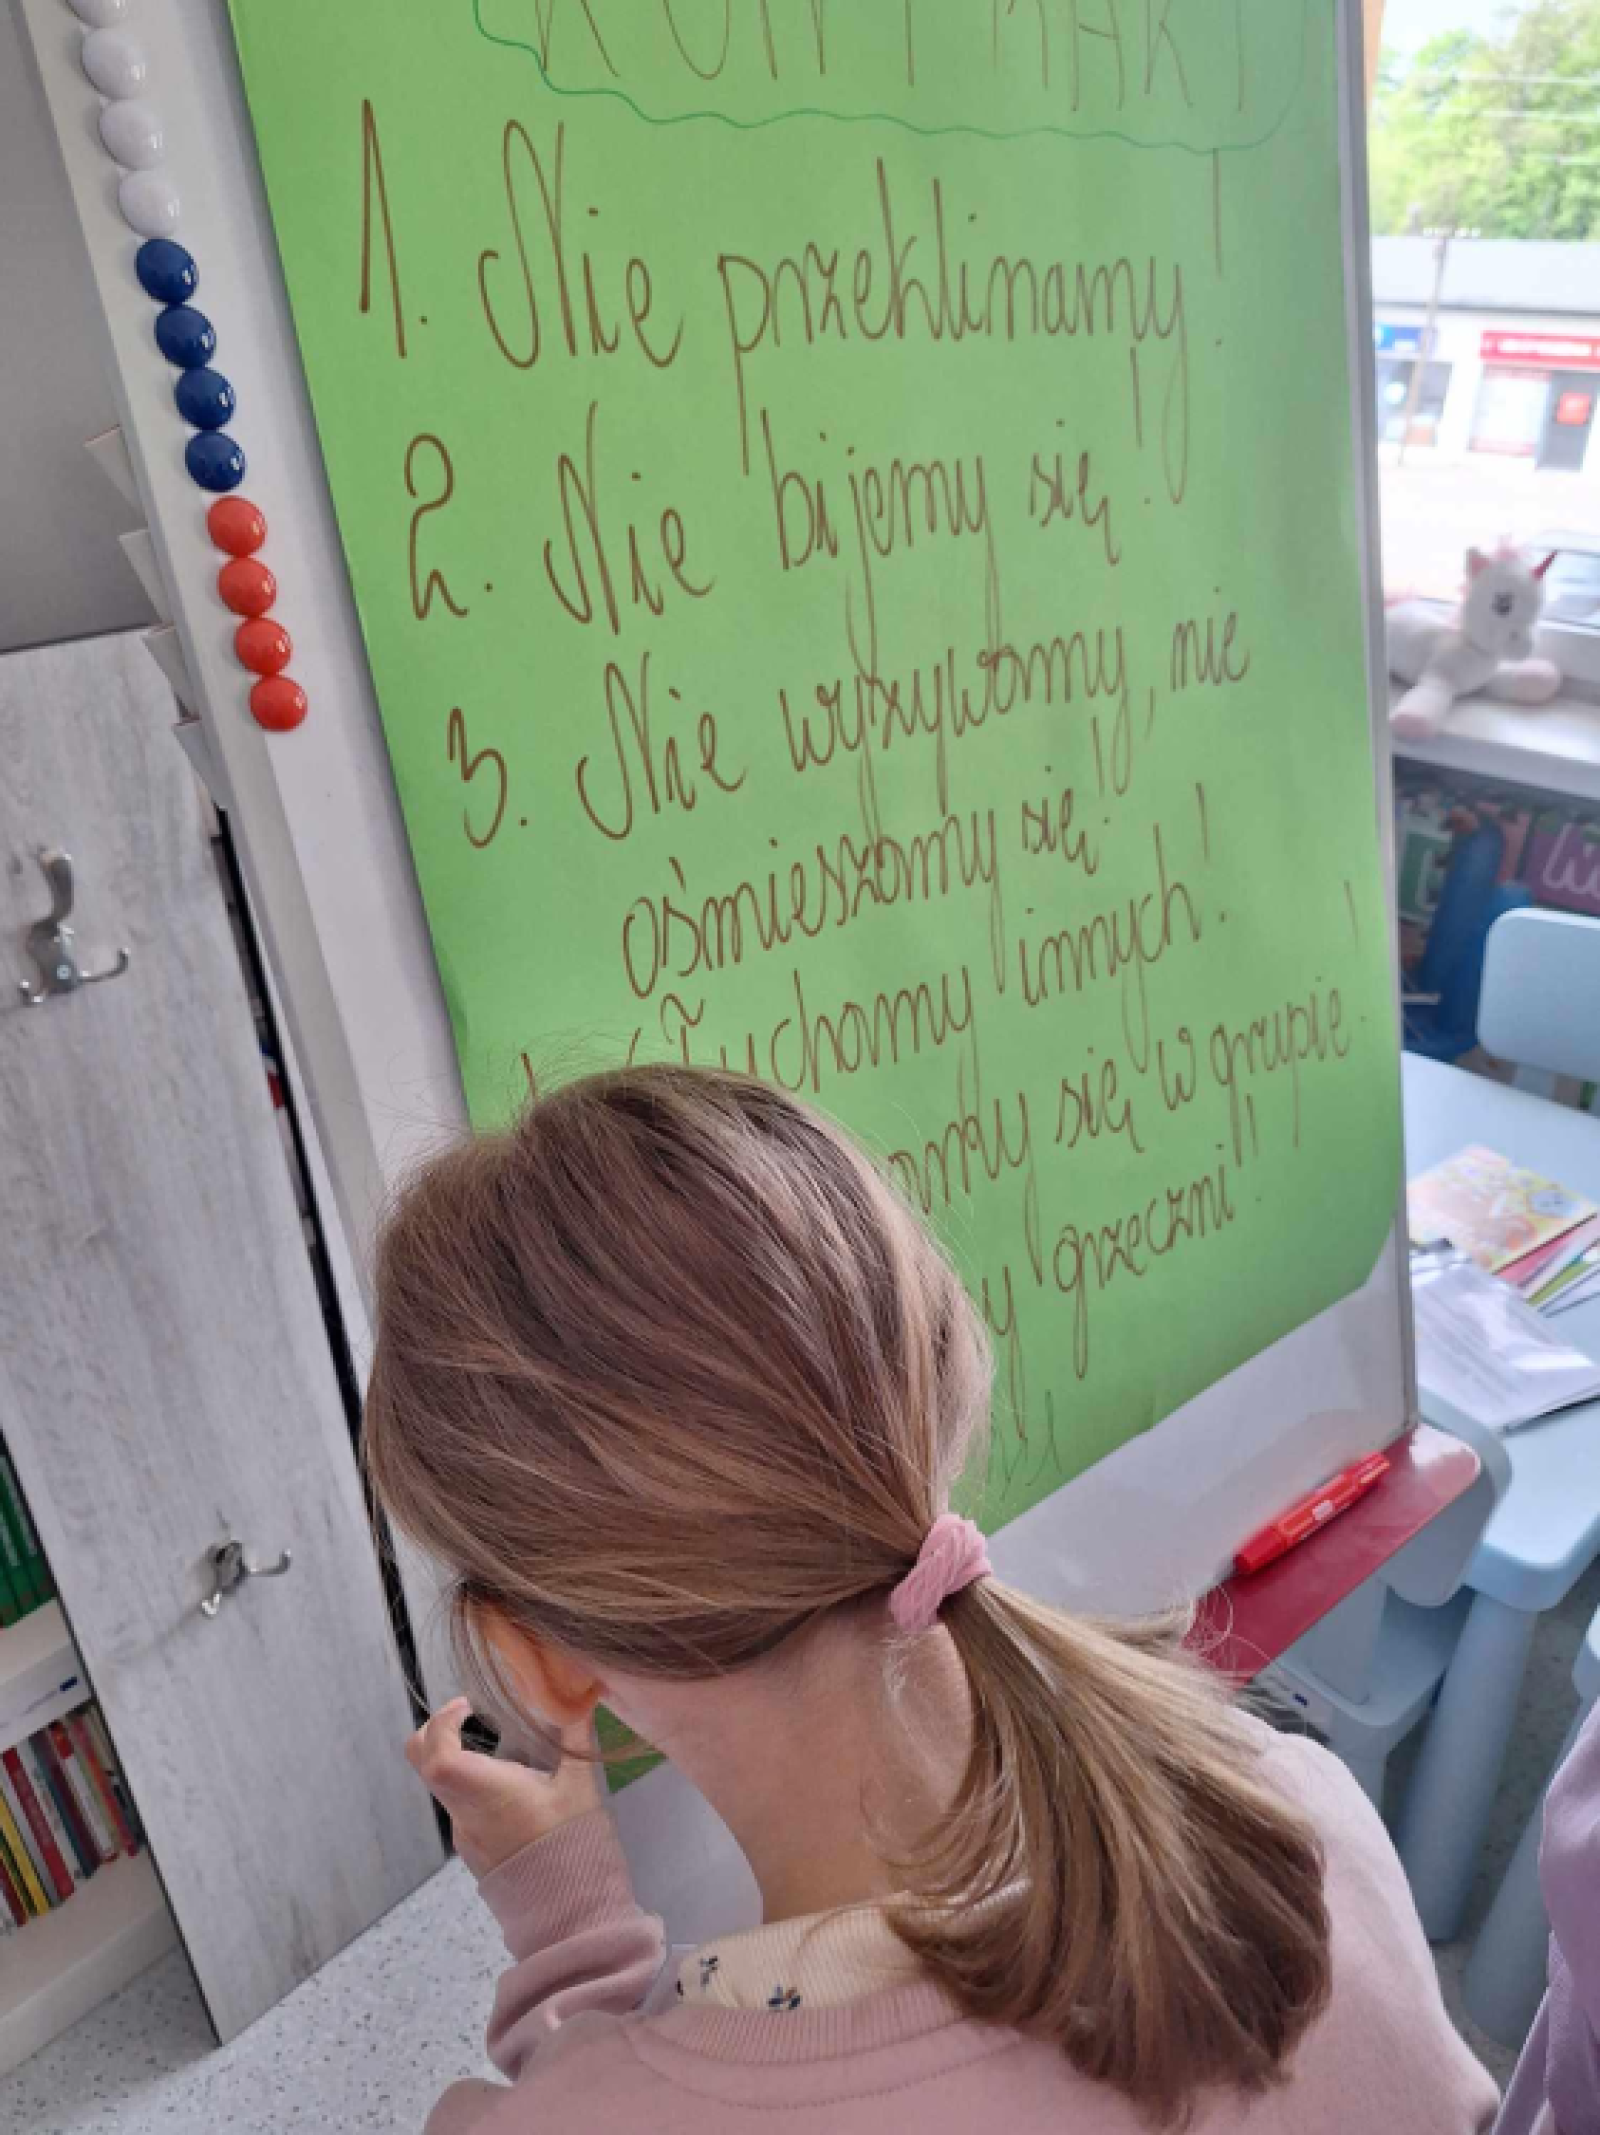 KONTRAKT
1. Nie przeklinamy!
2. Nie bijemy się!
3. Nie wyzywamy, nie
ośmieszamy się!
Słuchamy innych!
się w grupie!
grzeczni!!